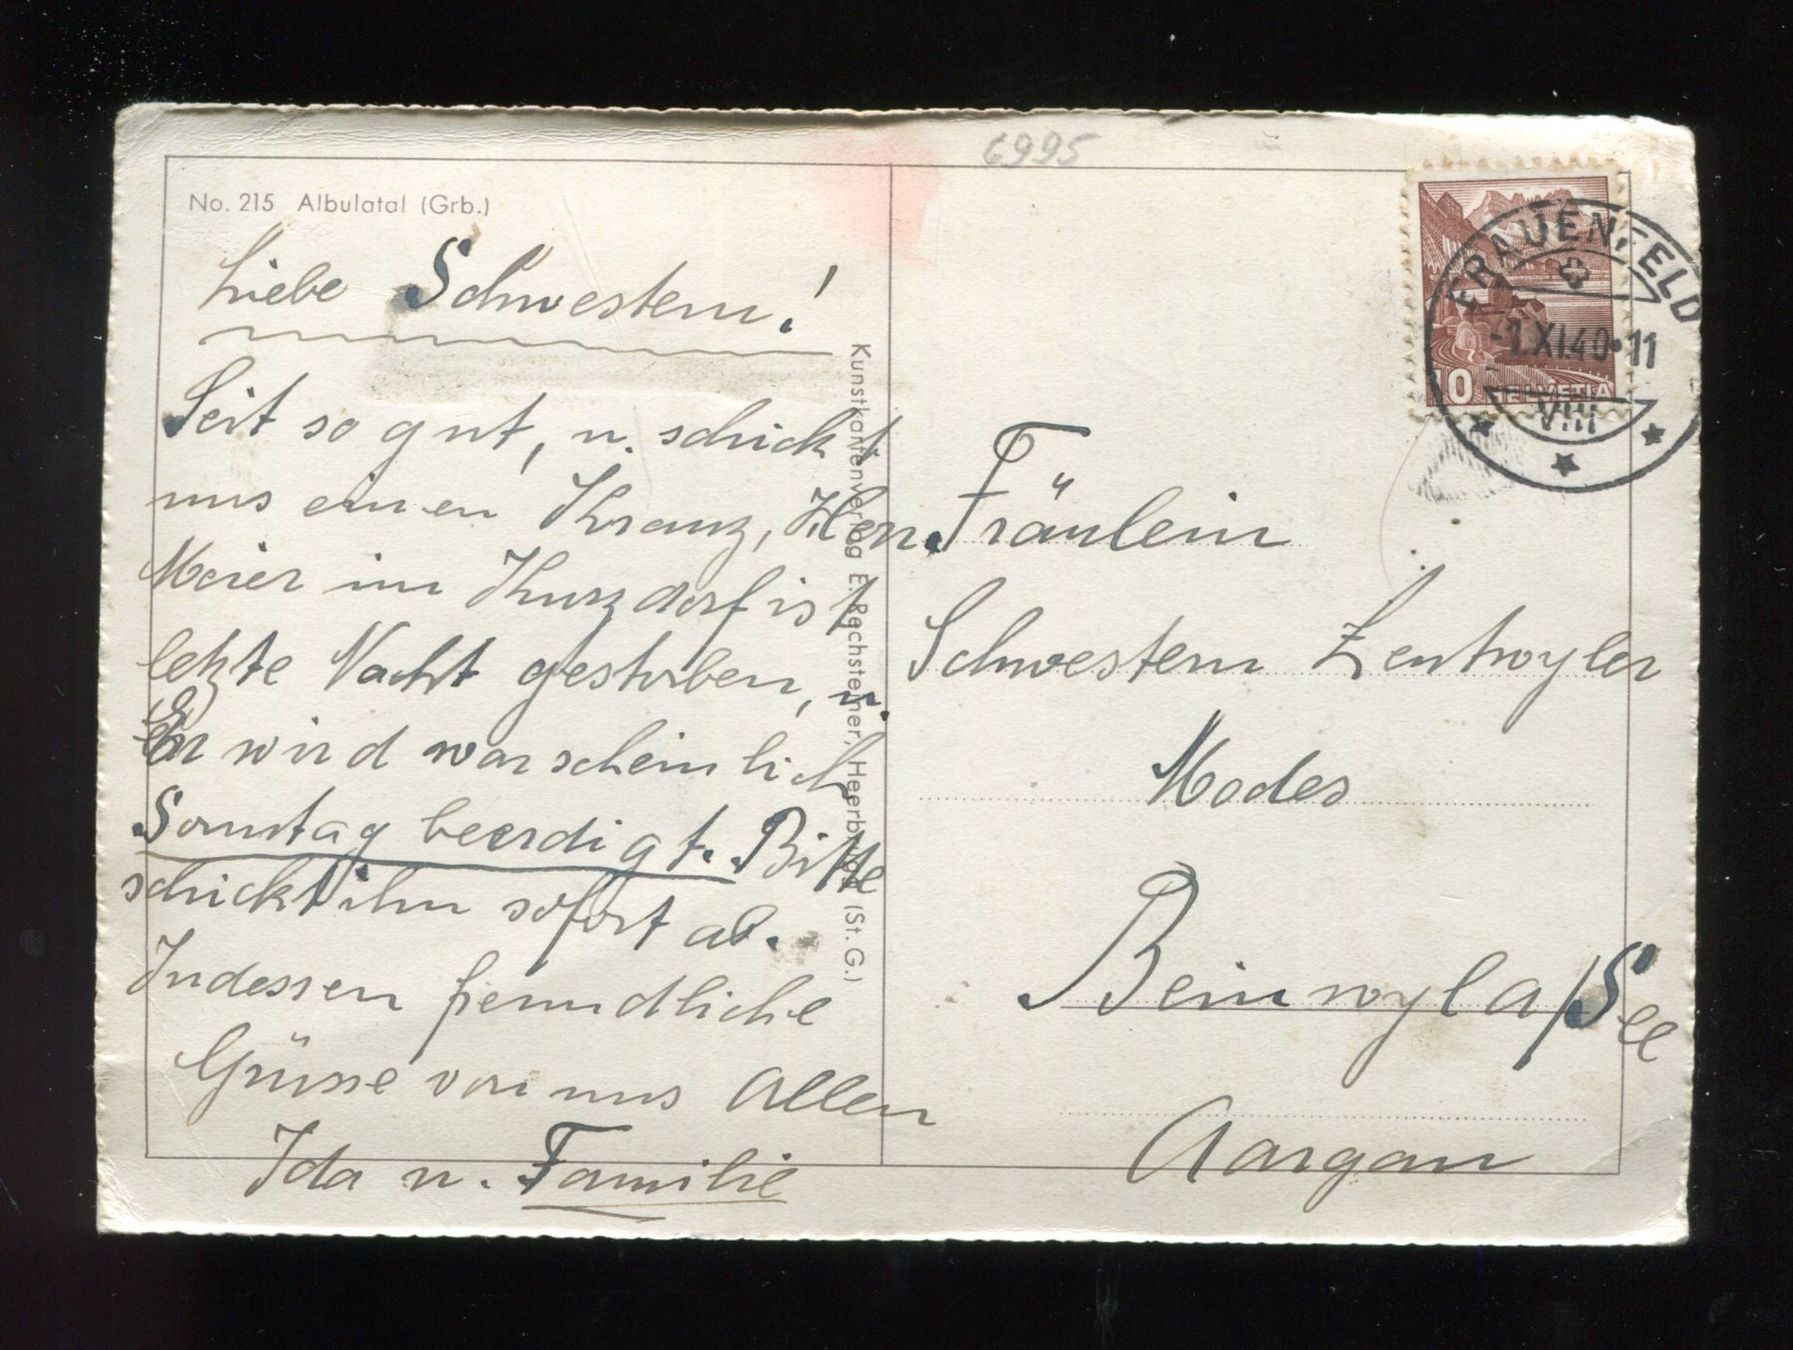 6995
No. 215 Albulatal (Grb.)
Liebe Schwestern!
Seit so gut, u. schickt
uns einen Kranz, Herr
Meier im Kurzdorf ist
letzte Nacht gestorben, u.
Er wird warscheinlich
Sonntag beerdigt. Bitte
schickt ihn sofort ab.
Indessen freundliche
Grüsse von uns Allen
Ida u. Familie
Kunstkartenverlag E. Rechsteiner, Heerbrugg (St. G.)
FRAUENFELD
-1.XI.40·11
VIII
10 HELVETIA
Fräulein
Schwestern Zentwyler
Modes
Beinwyl a/See
Aargau